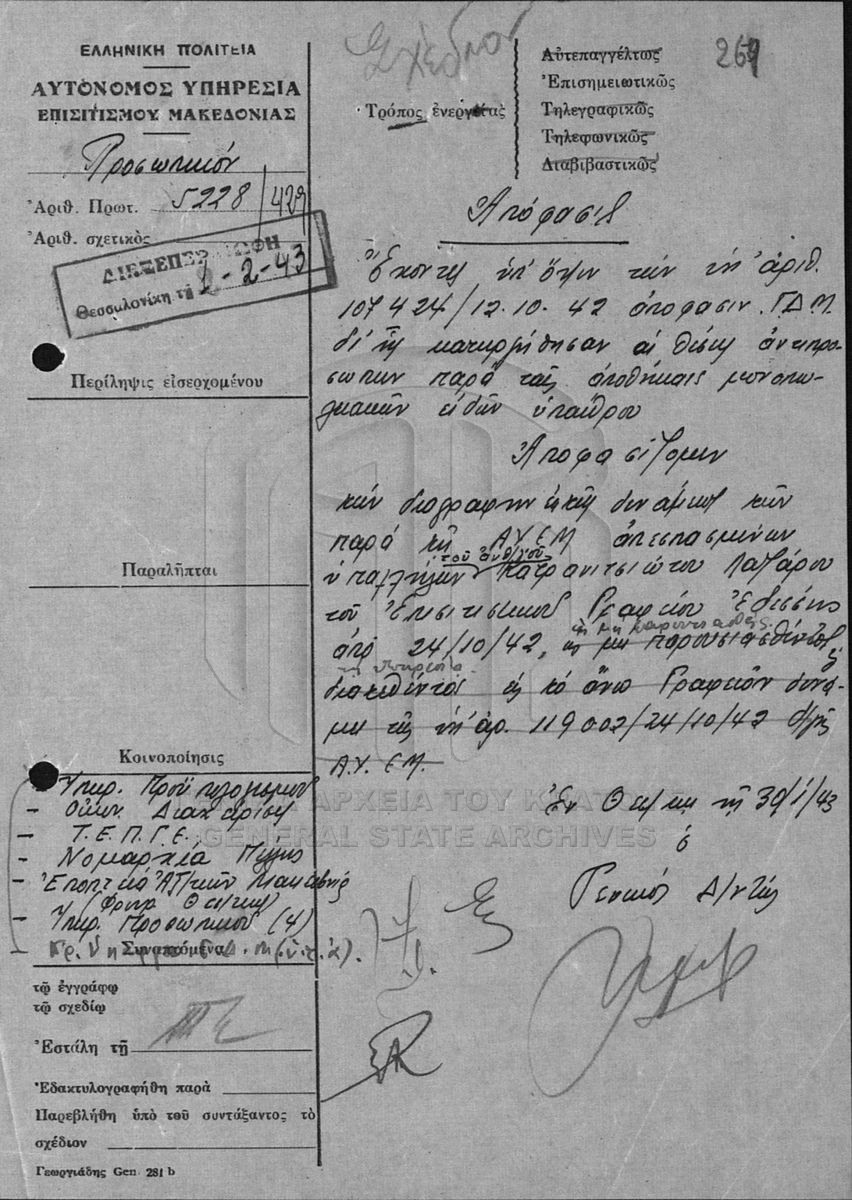 ΕΛΛΗΝΙΚΗ ΠΟΛΙΤΕΙΑ
ΑΥΤΟΝΟΜΟΣ ΥΠΗΡΕΣΙΑ
ΕΠΙΣΙΤΙΣΜΟΥ ΜΑΚΕΔΟΝΙΑΣ
Προσωπικόν
Ἀριθ. Πρωτ. 5228/429
Ἀριθ. σχετικὸς
ΔΙΕΞΕΠΕΡΑΙΩΘΗ
Θεσσαλονίκη τῇ 2-2-43
Περίληψις εἰσερχομένου
Παραλῆπται
Κοινοποίησις
Ὑπηρ. Προϋπολογισμοῦ
– Οἰκον. Διαχείρισιν
– Τ.Ε.Π.Γ.Ε.
– Νομαρχία Πέλλης
–
– Ὑπηρ. Προσωπικοῦ (4)
Συναπτόμενα
τῷ ἐγγράφῳ
τῷ σχεδίῳ
Ἐστάλη τῇ
Ἐδακτυλογραφήθη παρὰ
Παρεβλήθη ὑπὸ τοῦ συντάξαντος τὸ
σχέδιον
Γεωργιάδης Gen. 281 b
Σχέδιον
Τρόπος ἐνεργείας
Αὐτεπαγγέλτως
Ἐπισημειωτικῶς
Τηλεγραφικῶς
Τηλεφωνικῶς
Διαβιβαστικῶς
Ἀπόφασις
Ἔχοντες ὑπ' ὄψιν τὴν ὑπ' ἀριθ.
107424/12.10.42 ἀπόφασιν Γ.Δ.Μ.
δι' ἧς κατηργήθησαν αἱ θέσεις ἀντιπρο-
σώπων παρὰ ταῖς ἀποθήκαις μονοπω-
λιακῶν εἰδῶν ὑπαίθρου
Ἀποφασίζομεν
τὴν διαγραφὴν ἐκ τῆς δυνάμεως τῶν
παρὰ τῇ ΑΥΕΜ ἀπεσπασμένων
ὑπαλλήλων τοῦ Λαζάρου
τοῦ Ἐπισιτιστικοῦ Γραφείου Ἐδέσσης
ἀπὸ 24/10/42, ὡς μὴ παρουσιασθέντος
ὡς μὴ παρουσιασθείς
τῇ ὑπηρεσίᾳ
διατεθέντος εἰς τὸ ἄνω Γραφεῖον δυνά-
μει τῆς ὑπ' ἀρ. 119002/24/10/42 δ/γῆς
Α.Υ.ΕΜ.
Ἐν Θεσ/κῃ τῇ 30/1/43
ὁ
Γενικὸς Δ/ντής
ΑΡΧΕΙΑ ΤΟΥ ΚΡΑΤΟΥΣ
GENERAL STATE ARCHIVES